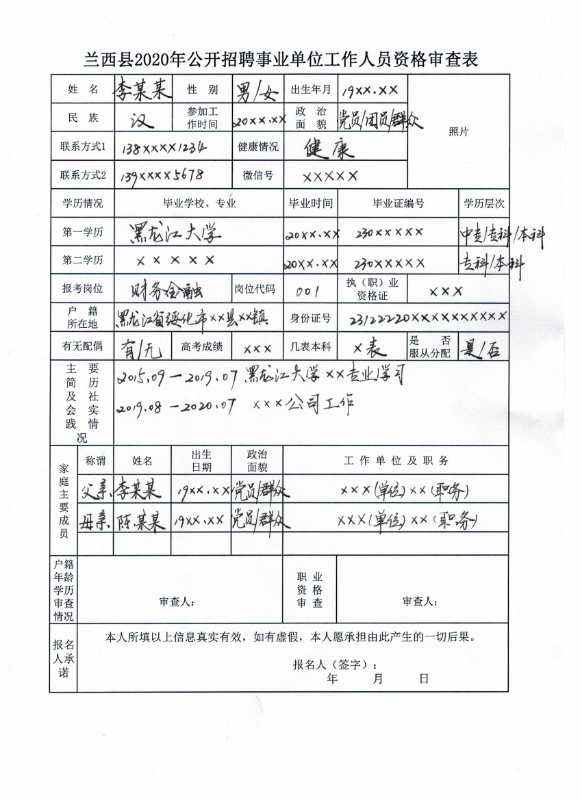 兰西县2020年公开招聘事业单位工作人员资格审查表
姓 名 李某某 性 别 男/女 出生年月 19××.××
民 族 汉 参加工作时间 20××.×× 政治面貌 党员/团员/群众 照片
联系方式1 138××××1234 健康情况 健康
联系方式2 139××××5678 微信号 ×××××
学历情况 毕业学校、专业 毕业时间 毕业证编号 学历层次
第一学历 黑龙江大学 20××.×× 230××××× 中专/专科/本科
第二学历 ××××× 20××.×× 230××××× 专科/本科
报考岗位 财务金融 岗位代码 001 执（职）业资格证 ×××
户 籍所在地 黑龙江省绥化市××县××镇 身份证号 23122220××××××××××
有无配偶 有/无 高考成绩 ××× 几表本科 ×表 是 否服从分配 是/否
主 要简 历及 社会 实践 情况
2015.09—2019.07 黑龙江大学××专业学习
2019.08—2020.07 ×××公司工作
家庭主要成员
称谓 姓名 出生日期 政治面貌 工 作 单 位 及 职 务
父亲 李某某 19××.×× 党员/群众 ×××(单位)××(职务)
母亲 陈某某 19××.×× 党员/群众 ×××(单位)××(职务)
户籍年龄学历审查情况 审查人： 职 业资 格审 查 审查人：
报名人承诺 本人所填以上信息真实有效，如有虚假，本人愿承担由此产生的一切后果。
报名人（签字）：
年 月 日